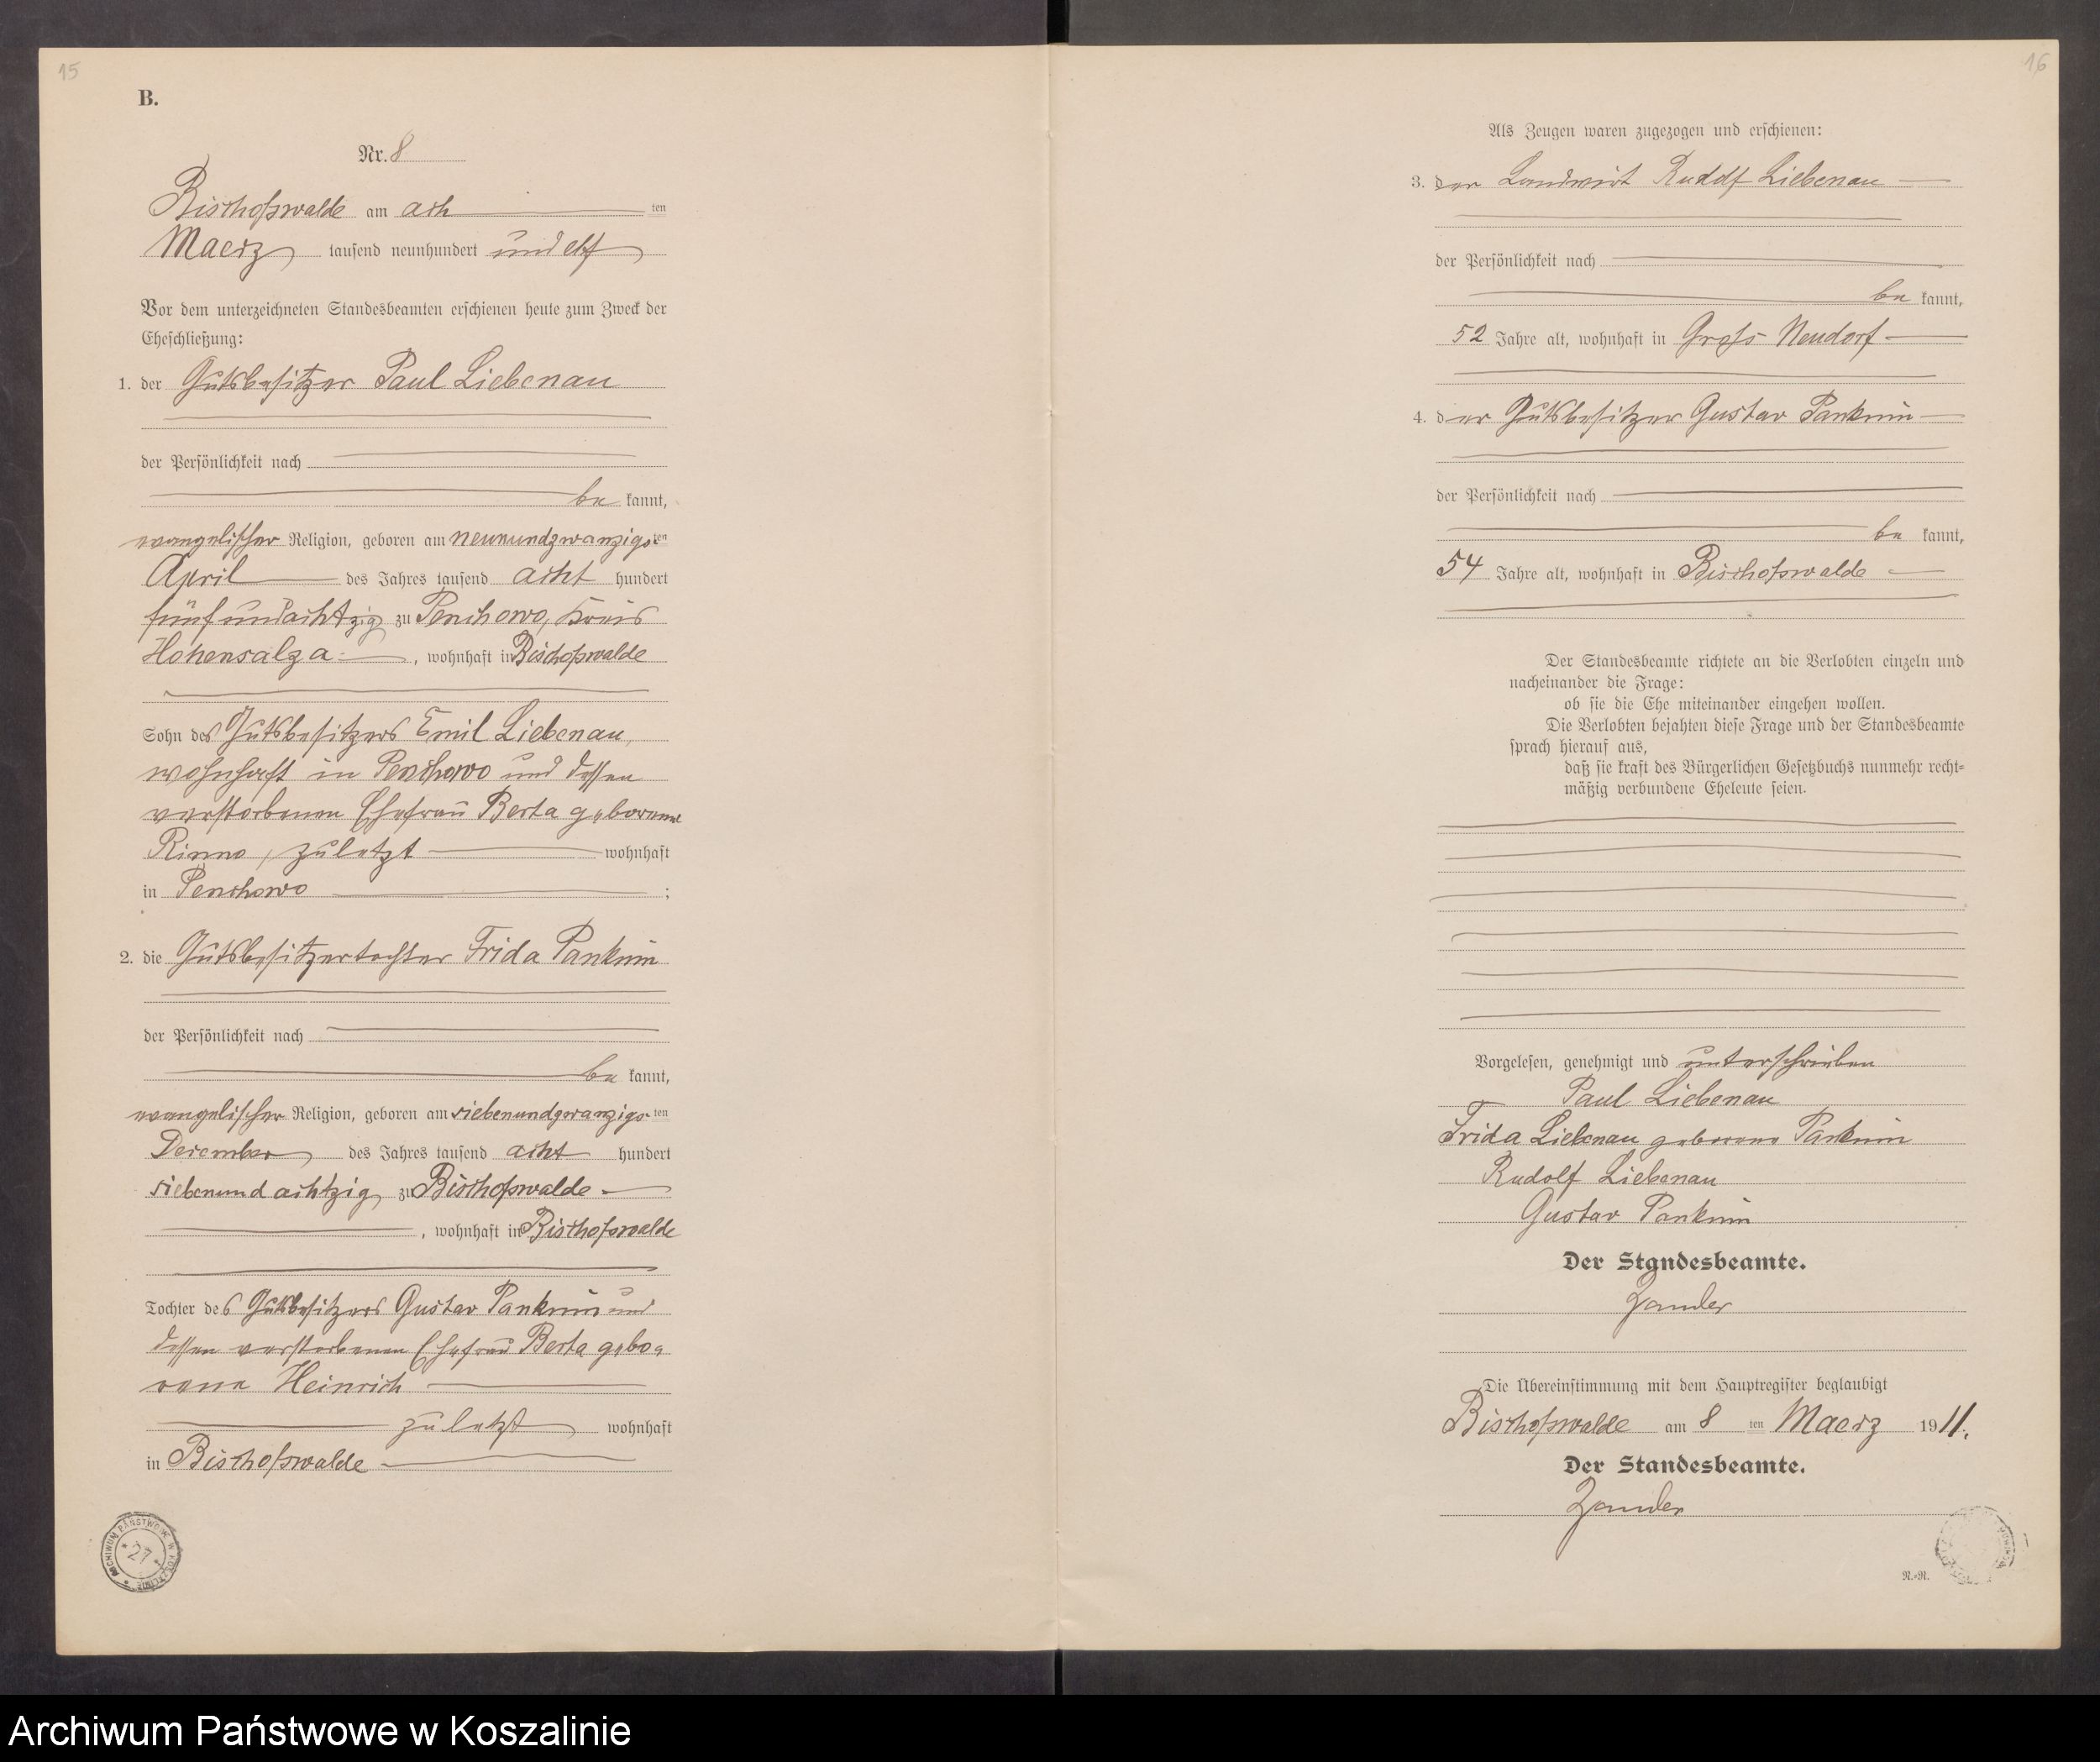 15
B.
Nr. 8
Bischofswalde am ach ten
Maerz tausend neunhundert und elf
Vor dem unterzeichneten Standesbeamten erschienen heute zum Zweck der
Eheschließung:
1. der Gutsbesitzer Paul Liebenau
der Persönlichkeit nach
be kannt,
evangelischer Religion, geboren am neunundzwanzigs ten
April des Jahres tausend acht hundert
fünfundachtzig zu Penchowo, Kreis
Hohensalza, wohnhaft in Bischofswalde
Sohn des Gutsbesitzers Emil Liebenau,
wohnhaft in Penchowo und dessen
verstorbenen Ehefrau Berta geborene
Rinno, zuletzt wohnhaft
in Penchowo ;
2. die Gutsbesitzertochter Frida Panknin
der Persönlichkeit nach
be kannt,
evangelischer Religion, geboren am siebenundzwanzigs ten
Dezember des Jahres tausend acht hundert
siebenundachtzig zu Bischofswalde
, wohnhaft in Bischofswalde
Tochter des Gutsbesitzers Gustav Panknin und
dessen verstorbenen Ehefrau Berta gebo-
rene Heinrich
zuletzt wohnhaft
in Bischofswalde
ARCHIWUM PAŃSTWOWE W KOSZALINIE * 27 *
16
Als Zeugen waren zugezogen und erschienen:
3. der Landwirt Rudolf Liebenau
der Persönlichkeit nach
be kannt,
52 Jahre alt, wohnhaft in Gross Neudorf
4. der Gutsbesitzer Gustav Panknin
der Persönlichkeit nach
be kannt,
54 Jahre alt, wohnhaft in Bischofswalde
Der Standesbeamte richtete an die Verlobten einzeln und
nacheinander die Frage:
ob sie die Ehe miteinander eingehen wollen.
Die Verlobten bejahten diese Frage und der Standesbeamte
sprach hierauf aus,
daß sie kraft des Bürgerlichen Gesetzbuchs nunmehr recht-
mäßig verbundene Eheleute seien.
Vorgelesen, genehmigt und unterschrieben
Paul Liebenau
Frida Liebenau geborene Panknin
Rudolf Liebenau
Gustav Panknin
Der Standesbeamte.
Zander
Die Übereinstimmung mit dem Hauptregister beglaubigt
Bischofswalde am 8 ten Maerz 1911.
Der Standesbeamte.
Zander
R.-R.
Archiwum Państwowe w Koszalinie